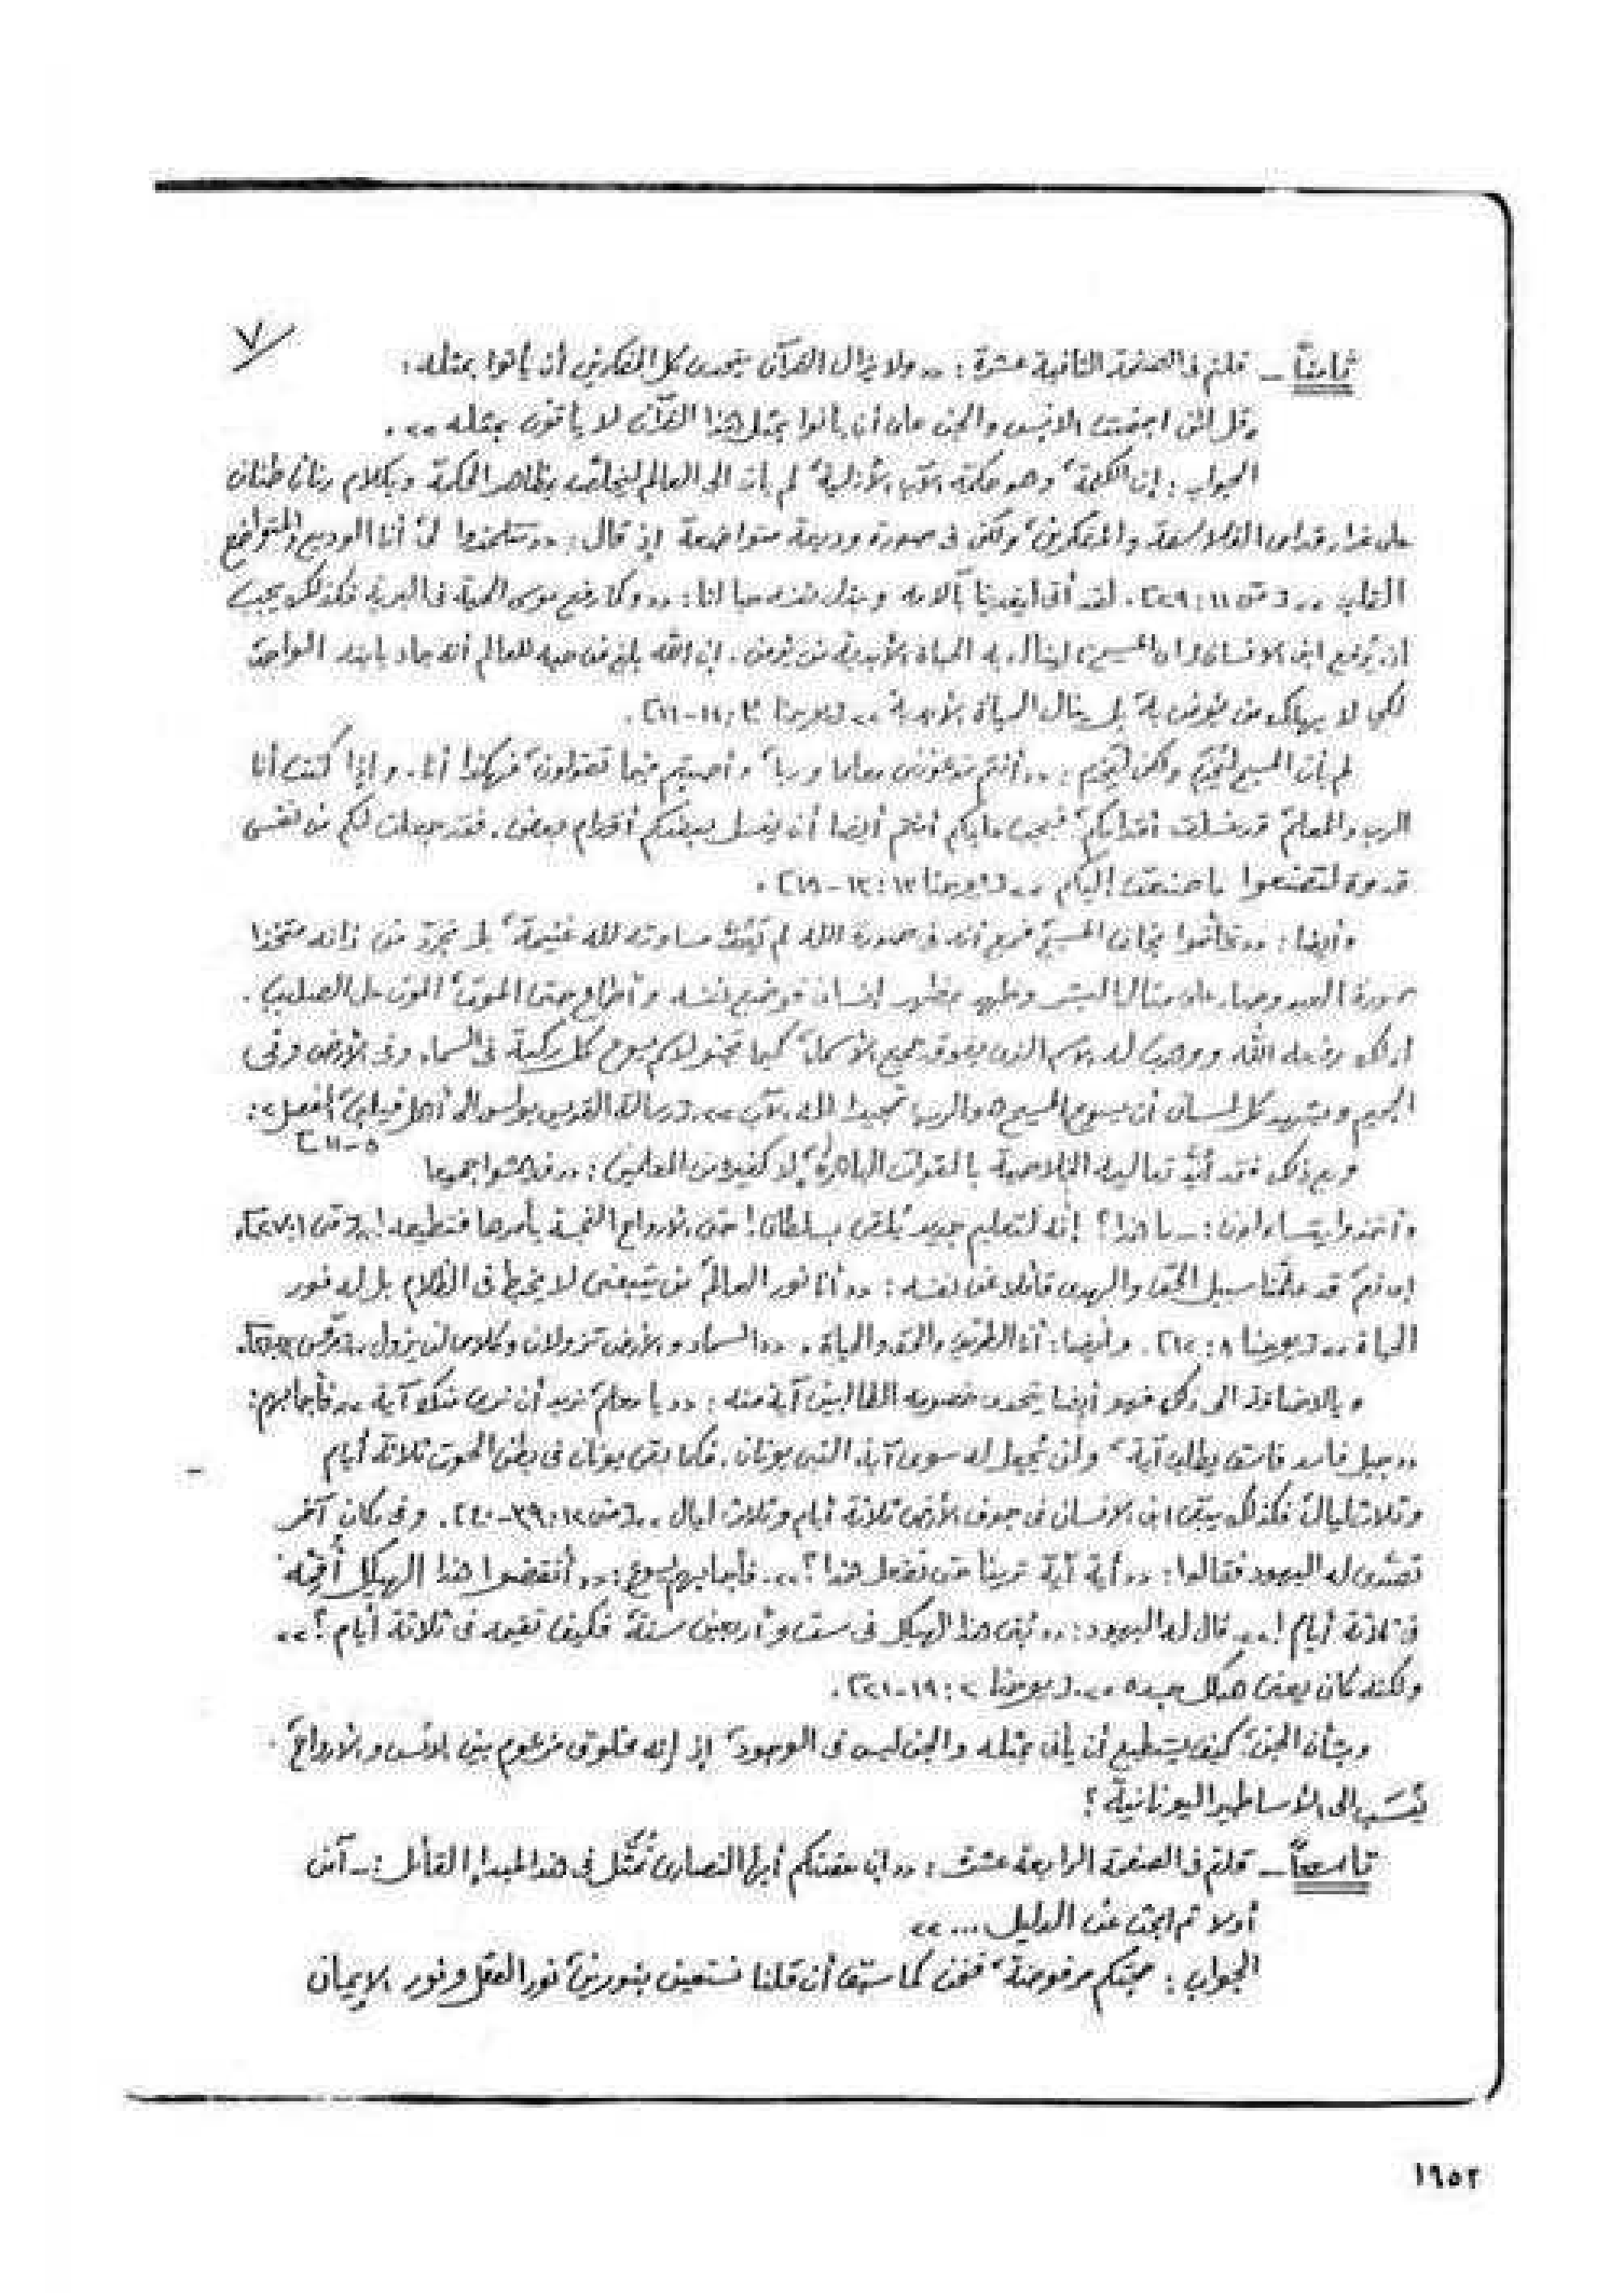 ٧
ثامناً – قلتم فى الصفحة الثانية عشرة : «ولا يزال القرآن يتحدى كل المفكرين أن يأتوا بمثله :
قل لئن اجتمعت الانس والجن على أن يأتوا بمثل هذا القرآن لا يأتون بمثله» .
الجواب : إن الكلمة، وهو حكمة الآب الأزلية، لم يأت الى العالم ليخلّصه بظاهر الحكمة وبكلام رنان طنان
على غرار قدامى الفلاسفة والمفكرين، ولكن فى صورة وديعة متواضعة إذ قال : «تتلمذوا لى، أنا الوديع والمتواضع
القلب» [متى ١١ : ٢٩]. لقد أتى ليفدينا بآلامه وبذل نفسه حبا لنا : «وكما رفع موسى الحية فى البرية، فكذلك يجب
ان يُرفع ابن الانسان (اى المسيح)، لينال به الحياة الأبدية من يؤمن. إن الله بلغ من حبه للعالم أنه جاد بابنه الواحد،
لكى لا يهلك من يؤمن به، بل ينال الحياة الأبدية» [يوحنا ٣ : ١٤-١٦].
لم يأت المسيح ليُخدَم ولكن ليَخدِم : «أنتم تدعوننى معلما وربا، وأصبتم فيما تقولون، فهكذا أنا. وإذا كنت أنا
الرب والمعلم قد غسلت أقدامكم، فيجب عليكم أنتم أيضا أن يغسل بعضكم أقدام بعض. فقد جعلت لكم من نفسى
قدوة لتصنعوا ما صنعت إليكم» [يوحنا ١٣ : ١٣-١٥].
وأيضا : «تخلّقوا بخلق المسيح، فمع أنه فى صورة الله لم يَعُدَّ مساوته لله غنيمة، بل تجرّد من ذاته متخذا
صورة العبد وصار على مثال البشر وظهر بمظهر إنسان فوضع نفسه وأطاع حتى الموت، الموت على الصليب.
لذلك رفعه الله ووهب له الاسم الذى يفوق جميع الأسماء، كيما تجثو لاسم يسوع كل ركبة فى السماء وفى الأرض وفى
الجحيم ويشهد كل لسان أن يسوع المسيح هو الرب تمجيدا لله الآب» [رسالة القديس بولس الى أهل فيلبى، الفصل ٢ :
٥-١١]
ومع ذلك فقد أيَّد تعاليمه الخلاصية بالقوات الباهرة، لا كغيره من المعلمين : «فدهشوا جميعا
وأخذوا يتساءلون : – ما هذا؟ إنه لتعليم جديد يُلقى بسلطان! حتى الأرواح النجسة يأمرها فتطيعه!»
إذ قد علّمنا سبيل الحق والهدى قائلا عن نفسه : «أنا نور العالم، من يتبعنى لا يخبط فى الظلام بل له نور
الحياة» [يوحنا ٨ : ١٢]. وأيضا : أنا الطريق والحق والحياة. «السماء والأرض تزولان وكلامى لن يزول»
وبالاضافة الى ذلك فهو أيضا يتحدى خصومه الطالبين آية منه : «يا معلم نريد أن نرى منك آية» فأجابهم :
«جيل فاسد فاسق يطلب آية، ولن يُجعل له سوى آية النبى يونان. فكما بقى يونان فى بطن الحوت ثلاثة أيام
وثلاث ليال، فكذلك يبقى ابن الانسان فى جوف الأرض ثلاثة أيام وثلاث ليال» [متى ١٢ : ٣٩-٤٠]. وفى مكان آخر
تصدّى له اليهود فقالوا : «أية آية ترينا حتى تفعل هذا؟». فأجابهم يسوع : «أنقضوا هذا الهيكل أُقِمْه
فى ثلاثة أيام!». قال له اليهود : «بُنى هذا الهيكل فى ست وأربعين سنة، فكيف تقيمه فى ثلاثة أيام؟»
ولكنه كان يعنى هيكل جسده» [يوحنا ٢ : ١٩-٢١].
وبشأن الجن، كيف يستطيع أن يأتى بمثله والجن ليس فى الوجود، إذ إنه مخلوق مزعوم بين الانس والأرواح،
يُنسَب الى الأساطير اليونانية؟
تاسعاً – قلتم فى الصفحة الرابعة عشرة : «ان عقيدتكم أيها النصارى تُمثَّل فى هذا المبدإ القائل : – آمن
أولا ثم ابحث عن الدليل ...»
الجواب : حجتكم مرفوضة، فنحن كما سبق أن قلنا نستعين بنورين، نور العقل ونور الإيمان
١٦٥٢